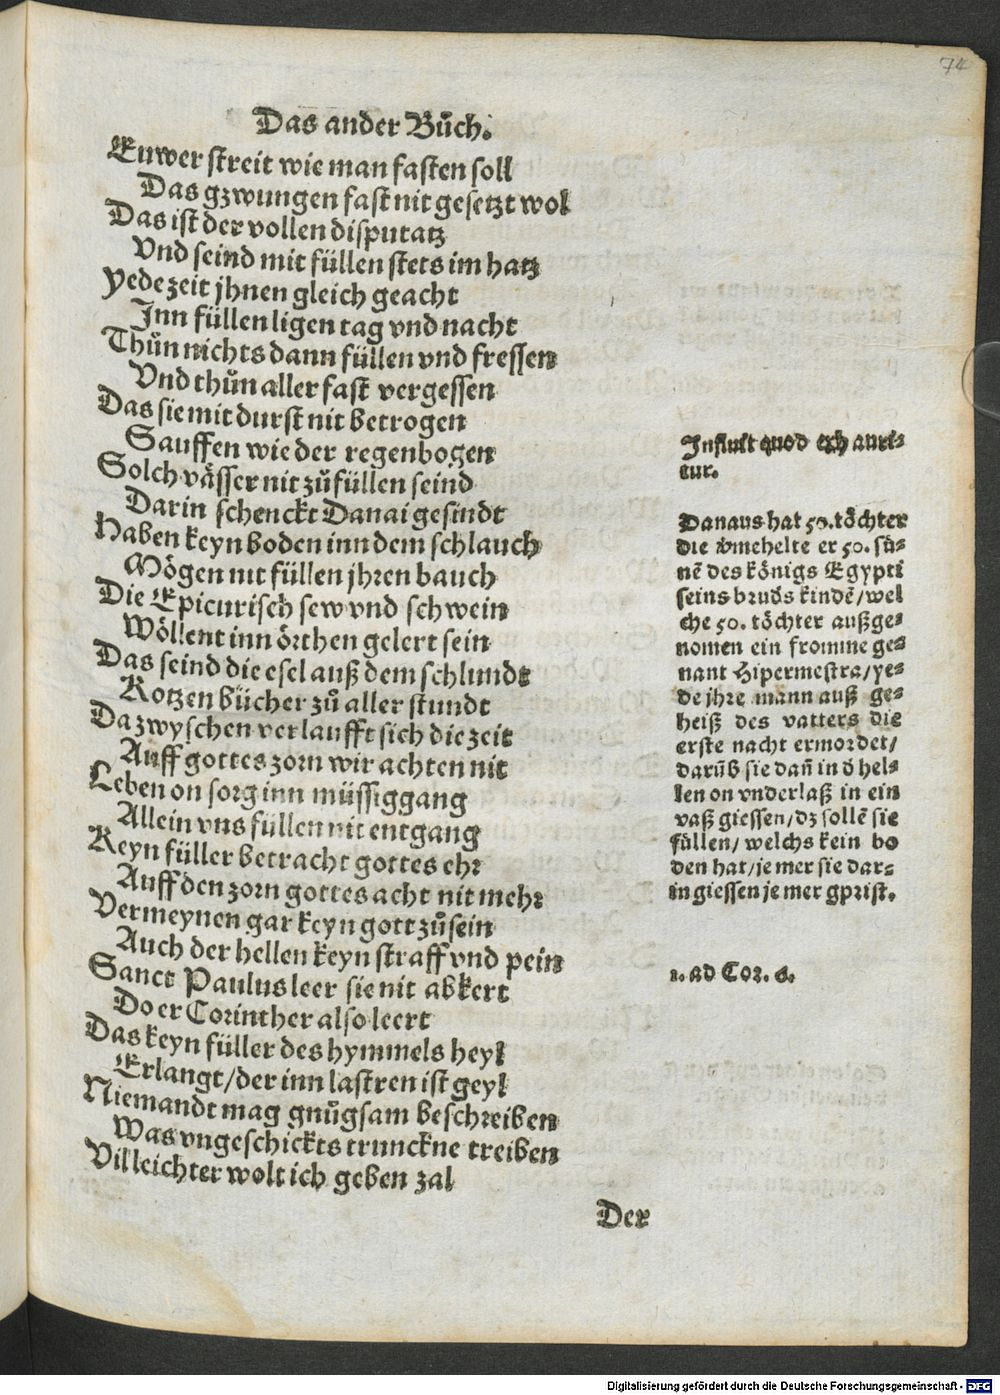 74
Das ander Bůch.
Euwer streit wie man fasten soll
Das gzwungen fast nit gesetzt wol
Das ist der vollen disputatz
Vnd seind mit füllen stets im hatz
Yede zeit jhnen gleich geacht
Inn füllen ligen tag vnd nacht
Thůn nichts dann füllen vnd fressen
Vnd thůn aller fast vergessen
Das sie mit durst nit betrogen
Sauffen wie der regenbogen
Solch vässer nit zůfüllen seind
Darin schenckt Danai gesindt
Haben keyn boden inn dem schlauch
Mögen nit füllen jhren bauch
Die Epicurisch sew vnd schwein
Wöllent inn örthen gelert sein
Das seind die esel auß dem schlundt
Kotzen bücher zů aller stundt
Da zwyschen verlaufft sich die zeit
Auff gottes zorn wir achten nit
Leben on sorg inn müssiggang
Allein vns füllen nit entgang
Keyn füller betracht gottes ehr
Auff den zorn gottes acht nit mehr
Vermeynen gar keyn gott zůsein
Auch der hellen keyn straff vnd pein
Sanct Paulus leer sie nit abkert
Do er Corinther also leert
Das keyn füller des hymmels heyl
Erlangt/der inn lastren ist geyl
Niemandt mag gnůgsam beschreiben
Was vngeschickts trunckne treiben
Vil leichter wolt ich geben zal
Der
Influit quod exhauri-
tur.
Danaus hat 50. töchter
die v̄mehelte er 50. sü-
nē des königs Egypti
seins bruds kindē/wel
che 50. töchter außge-
nomen ein fromme ge-
nant Hipermestra/ye-
de jhre männ auß ge-
heiß des vatters die
erste nacht ermordet/
darūb sie dañ in d hel-
len on vnderlaß in ein
vaß giessen/dz sollē sie
füllen/ welchs kein bo
den hat/je mer sie dar-
in giessen je mer gprist.
1. ad Cor. 6.
Digitalisierung gefördert durch die Deutsche Forschungsgemeinschaft - DFG